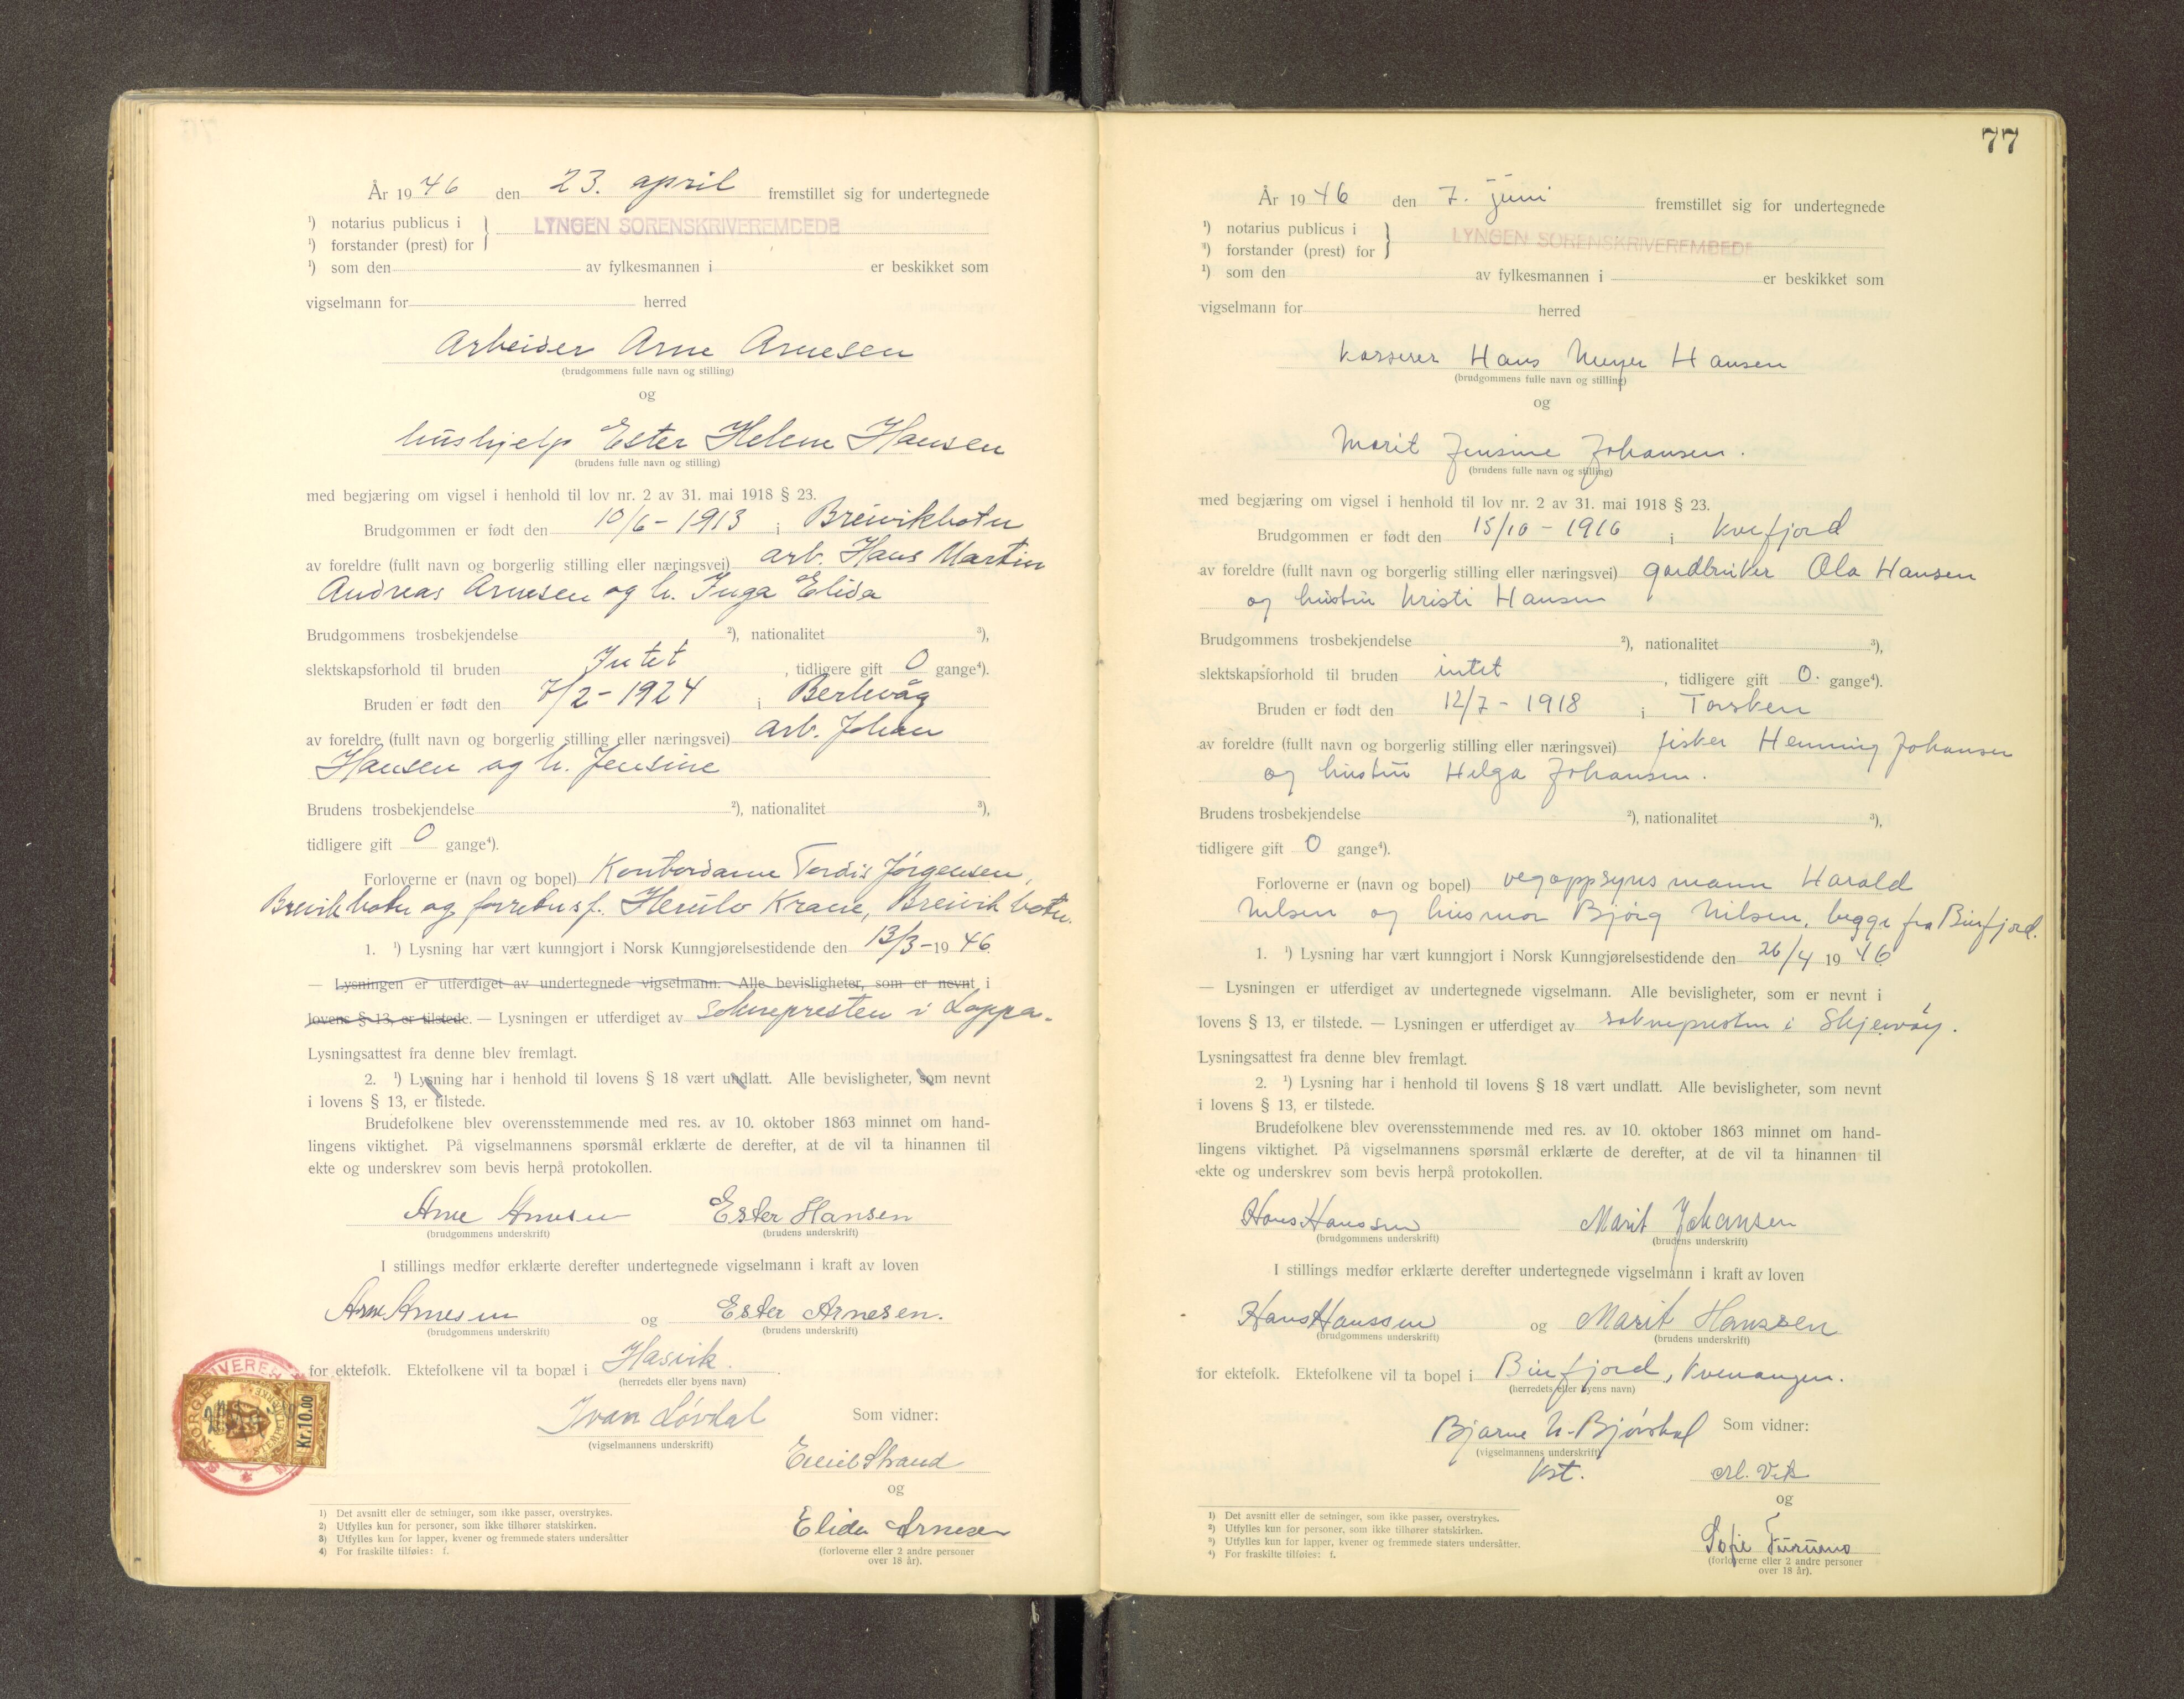 År 1946 den 23. april fremstillet sig for undertegnede
¹) notarius publicus i
LYNGEN SORENSKRIVEREMBEDE
¹) forstander (prest) for
¹) som den av fylkesmannen i er beskikket som
vigselmann for herred
Arbeider Arne Arnesen
(brudgommens fulle navn og stilling)
og
hushjelp Ester Helene Hansen
(brudens fulle navn og stilling)
med begjæring om vigsel i henhold til lov nr. 2 av 31. mai 1918 § 23.
Brudgommen er født den 10/6-1913 i Breivikbotn
av foreldre (fullt navn og borgerlig stilling eller næringsvei) arb. Hans Martin
Andreas Arnesen og h. Inga Elida
Brudgommens trosbekjendelse ²), nationalitet ³),
slektskapsforhold til bruden Intet, tidligere gift 0 gange⁴).
Bruden er født den 7/2-1924 i Berlevåg
av foreldre (fullt navn og borgerlig stilling eller næringsvei) arb. Johan
Hansen og h. Jensine
Brudens trosbekjendelse ²), nationalitet ³),
tidligere gift 0 gange⁴).
Forloverne er (navn og bopel) Kontordame Tordis Jørgensen,
Breivikbotn og forretn.f. Herulv Krane, Breivikbotn.
1. ¹) Lysning har vært kunngjort i Norsk Kunngjørelsestidende den 13/3-1946.
— Lysningen er utferdiget av undertegnede vigselmann. Alle bevisligheter, som er nevnt i
lovens § 13, er tilstede. — Lysningen er utferdiget av soknepresten i Loppa.
Lysningsattest fra denne blev fremlagt.
2. ¹) Lysning har i henhold til lovens § 18 vært undlatt. Alle bevisligheter, som nevnt
i lovens § 13, er tilstede.
Brudefolkene blev overensstemmende med res. av 10. oktober 1863 minnet om hand-
lingens viktighet. På vigselmannens spørsmål erklærte de derefter, at de vil ta hinannen til
ekte og underskrev som bevis herpå protokollen.
Arne Arnesen Ester Hansen
(brudgommens underskrift) (brudens underskrift)
I stillings medfør erklærte derefter undertegnede vigselmann i kraft av loven
Arne Arnesen og Ester Arnesen.
(brudgommens underskrift) (brudens underskrift)
for ektefolk. Ektefolkene vil ta bopæl i Hasvik.
(herredets eller byens navn)
Kr.10.00
Ivar Løvdal Som vidner:
(vigselmannens underskrift)
Emil Strand
og
Elida Arnesen
(forloverne eller 2 andre personer
over 18 år).
1) Det avsnitt eller de setninger, som ikke passer, overstrykes.
2) Utfylles kun for personer, som ikke tilhører statskirken.
3) Utfylles kun for lapper, kvener og fremmede staters undersåtter
4) For fraskilte tilføies: f.
77
År 1946 den 7. juni fremstillet sig for undertegnede
¹) notarius publicus i
LYNGEN SORENSKRIVEREMBEDE
¹) forstander (prest) for
¹) som den av fylkesmannen i er beskikket som
vigselmann for herred
kasserer Hans Meyer Hansen
(brudgommens fulle navn og stilling)
og
Marit Jensine Johansen.
(brudens fulle navn og stilling)
med begjæring om vigsel i henhold til lov nr. 2 av 31. mai 1918 § 23.
Brudgommen er født den 15/10-1916 i Kvefjord
av foreldre (fullt navn og borgerlig stilling eller næringsvei) gardbruker Ola Hansen
og hustru Kristi Hansen
Brudgommens trosbekjendelse ²), nationalitet ³),
slektskapsforhold til bruden intet, tidligere gift 0. gange⁴).
Bruden er født den 12/7-1918 i Torsken
av foreldre (fullt navn og borgerlig stilling eller næringsvei) fisker Henning Johansen
og hustru Helga Johansen.
Brudens trosbekjendelse ²), nationalitet ³),
tidligere gift 0 gange⁴).
Forloverne er (navn og bopel) vegoppsynsmann Harald
Nilsen og husmor Bjørg Nilsen, begge fra Burfjord.
1. ¹) Lysning har vært kunngjort i Norsk Kunngjørelsestidende den 26/4 1946
— Lysningen er utferdiget av undertegnede vigselmann. Alle bevisligheter, som er nevnt i
lovens § 13, er tilstede. — Lysningen er utferdiget av soknepresten i Skjervøy.
Lysningsattest fra denne blev fremlagt.
2. ¹) Lysning har i henhold til lovens § 18 vært undlatt. Alle bevisligheter, som nevnt
i lovens § 13, er tilstede.
Brudefolkene blev overensstemmende med res. av 10. oktober 1863 minnet om hand-
lingens viktighet. På vigselmannens spørsmål erklærte de derefter, at de vil ta hinannen til
ekte og underskrev som bevis herpå protokollen.
Hans Hanssen Marit Johansen
(brudgommens underskrift) (brudens underskrift)
I stillings medfør erklærte derefter undertegnede vigselmann i kraft av loven
Hans Hanssen og Marit Hanssen
(brudgommens underskrift) (brudens underskrift)
for ektefolk. Ektefolkene vil ta bopel i Burfjord, Kvenangen.
(herredets eller byens navn)
Bjarne N. Bjørstad Som vidner:
(vigselmannens underskrift)
kst. Vik
og
Sofie Furumo
(forloverne eller 2 andre personer
over 18 år).
¹) Det avsnitt eller de setninger, som ikke passer, overstrykes.
²) Utfylles kun for personer, som ikke tilhører statskirken.
³) Utfylles kun for lapper, kvener og fremmede staters undersåtter.
⁴) For fraskilte tilføies: f.